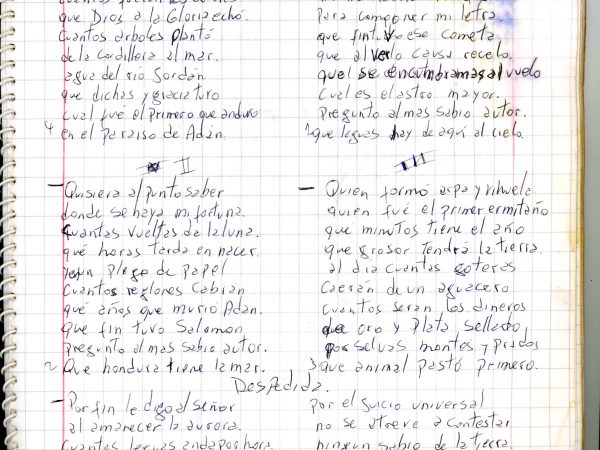 que Dios a la Gloria echó.
Cuantos arboles plantó
de la Cordillera al mar.
agua del rió Jordán
que dichas y gracia turo
cual fué el primero que anduro
4 en el paraiso de Adán.
II
– Quisiera al punto saber
donde se haya mi fortuna.
Cuantas vueltas da la luna.
qué horas tarda en nacer.
y en un plego de papel
Cuantos reglones Cabian
qué años que murió Adán.
que fin turo Salomon
pregunto al mas sabio autor.
2 Que hondura tiene la mar.
Para componer mi letra.
que fin tuvo ese cometa
que al verlo causa recelo.
quel se encumbra mas al vuelo
Cual es el astro mayor.
Pregunto al mas sabio autor.
1 que leguas hay de aquí al cielo.
III
– Quien formó arpa y vihuela
quien fué el primer ermitaño
que minutos tiene el año
que grosor tendrá la tierra.
al dia cuantas goteras
Caerán de un aguacero
cuantos serán los dineros
de oro y plata sellado
por selvas montes y prados
3 que animal pastó primero.
Despedida.
– Por fin le digo al señor
al amanecer la aurora.
Cuantas leguas anda por hora.
por el juicio universal
no se atreve a contestar
ningun sabio de la tierra.